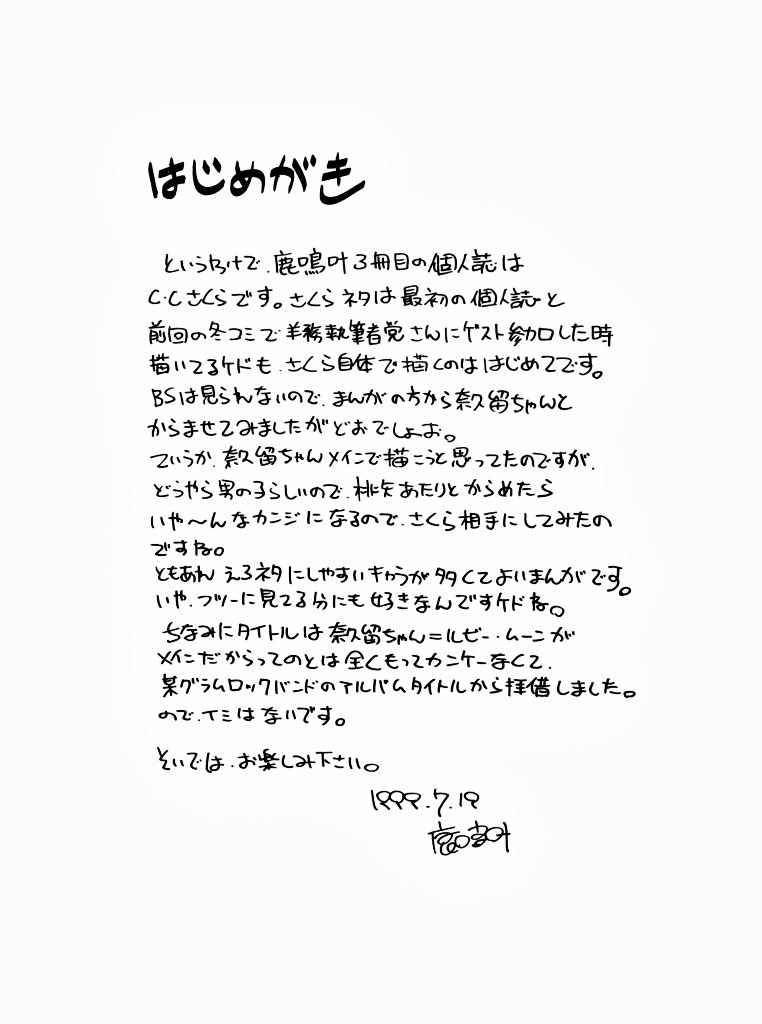 はじめがき
というわけで、鹿鳴叶3冊目の個人誌は
C・Cさくらです。さくらネタは最初の個人誌と
前回の冬コミで業務執筆者党さんにゲスト参加した時
描いてるケドも、さくら自体で描くのははじめてです。
BSは見られないので、まんがの方から奈久留ちゃんと
からませてみましたがどおでしょお。
ていうか、奈久留ちゃんメインで描こうと思ってたのですが、
どうやら男の子らしいので、桃矢あたりとからめたら
いや〜んなカンジになるので、さくら相手にしてみたの
ですね。
ともあれ えろネタにしやすいキャラが多くてよいまんがです。
いや、フツーに見てる分にも好きなんですケドね。
ちなみにタイトルは奈久留ちゃん=ルビー・ムーンが
メインだからってのとは全くもってカンケーなくて、
某グラムロックバンドのアルバムタイトルから拝借しました。
ので、イミはないです。
そいでは、お楽しみ下さい。
1999.7.19